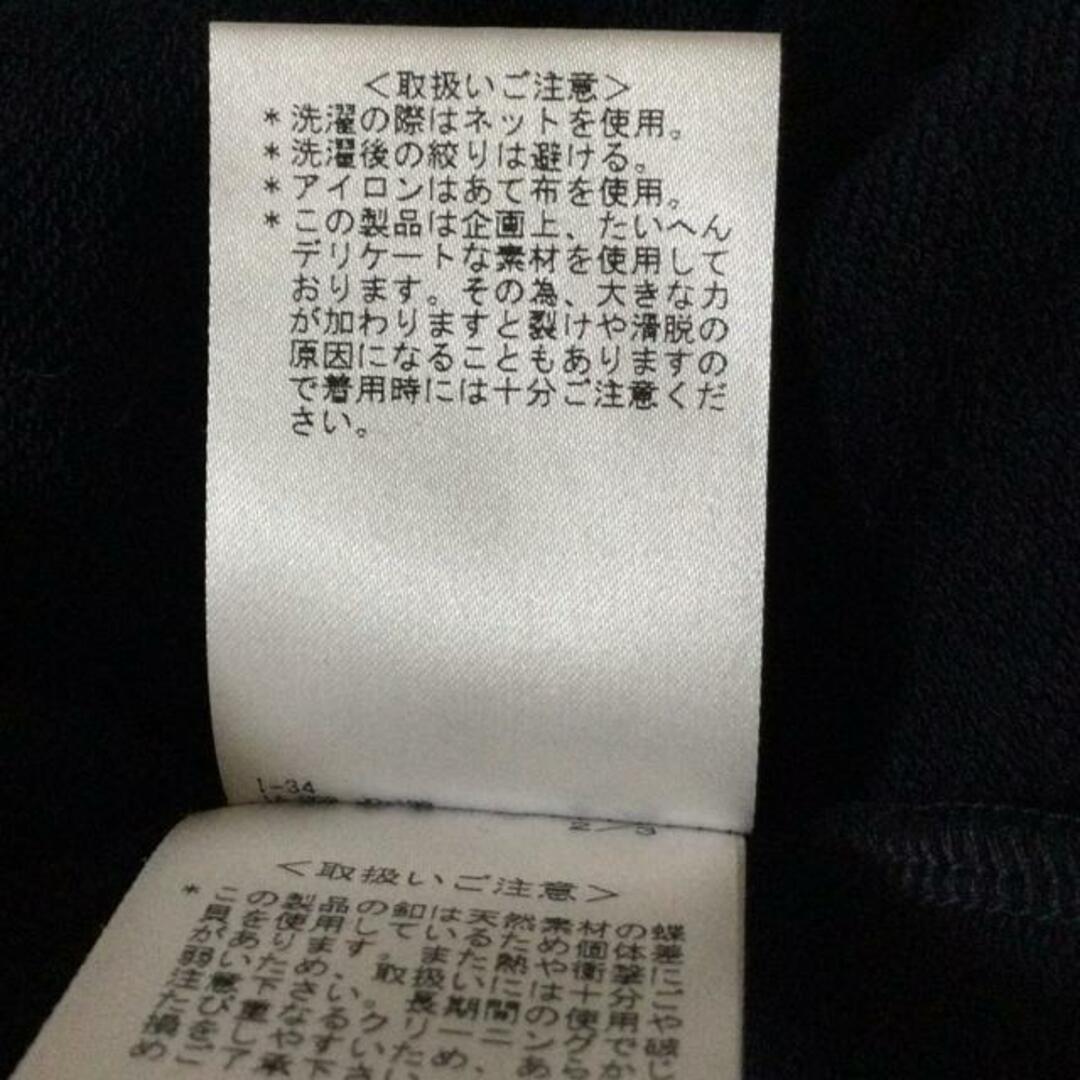 <取扱いご注意>
*洗濯の際はネットを使用。
*洗濯後の絞りは避ける。
*アイロンはあて布を使用。
*この製品は企画上、たいへん
デリケートな素材を使用して
おります。その為、大きな力
が加わりますと裂けや滑脱の
原因になることもありますの
で着用時には十分ご注意くだ
さい。
I-34
2/3
<取扱いご注意>
*この製品の釦は天然素材の蝶
貝を使用しているため個体差
があります。また熱や衝撃に
弱いため、取扱いには十分ご
注意下さい。長期間の使用や
たび重なるクリーニングで破